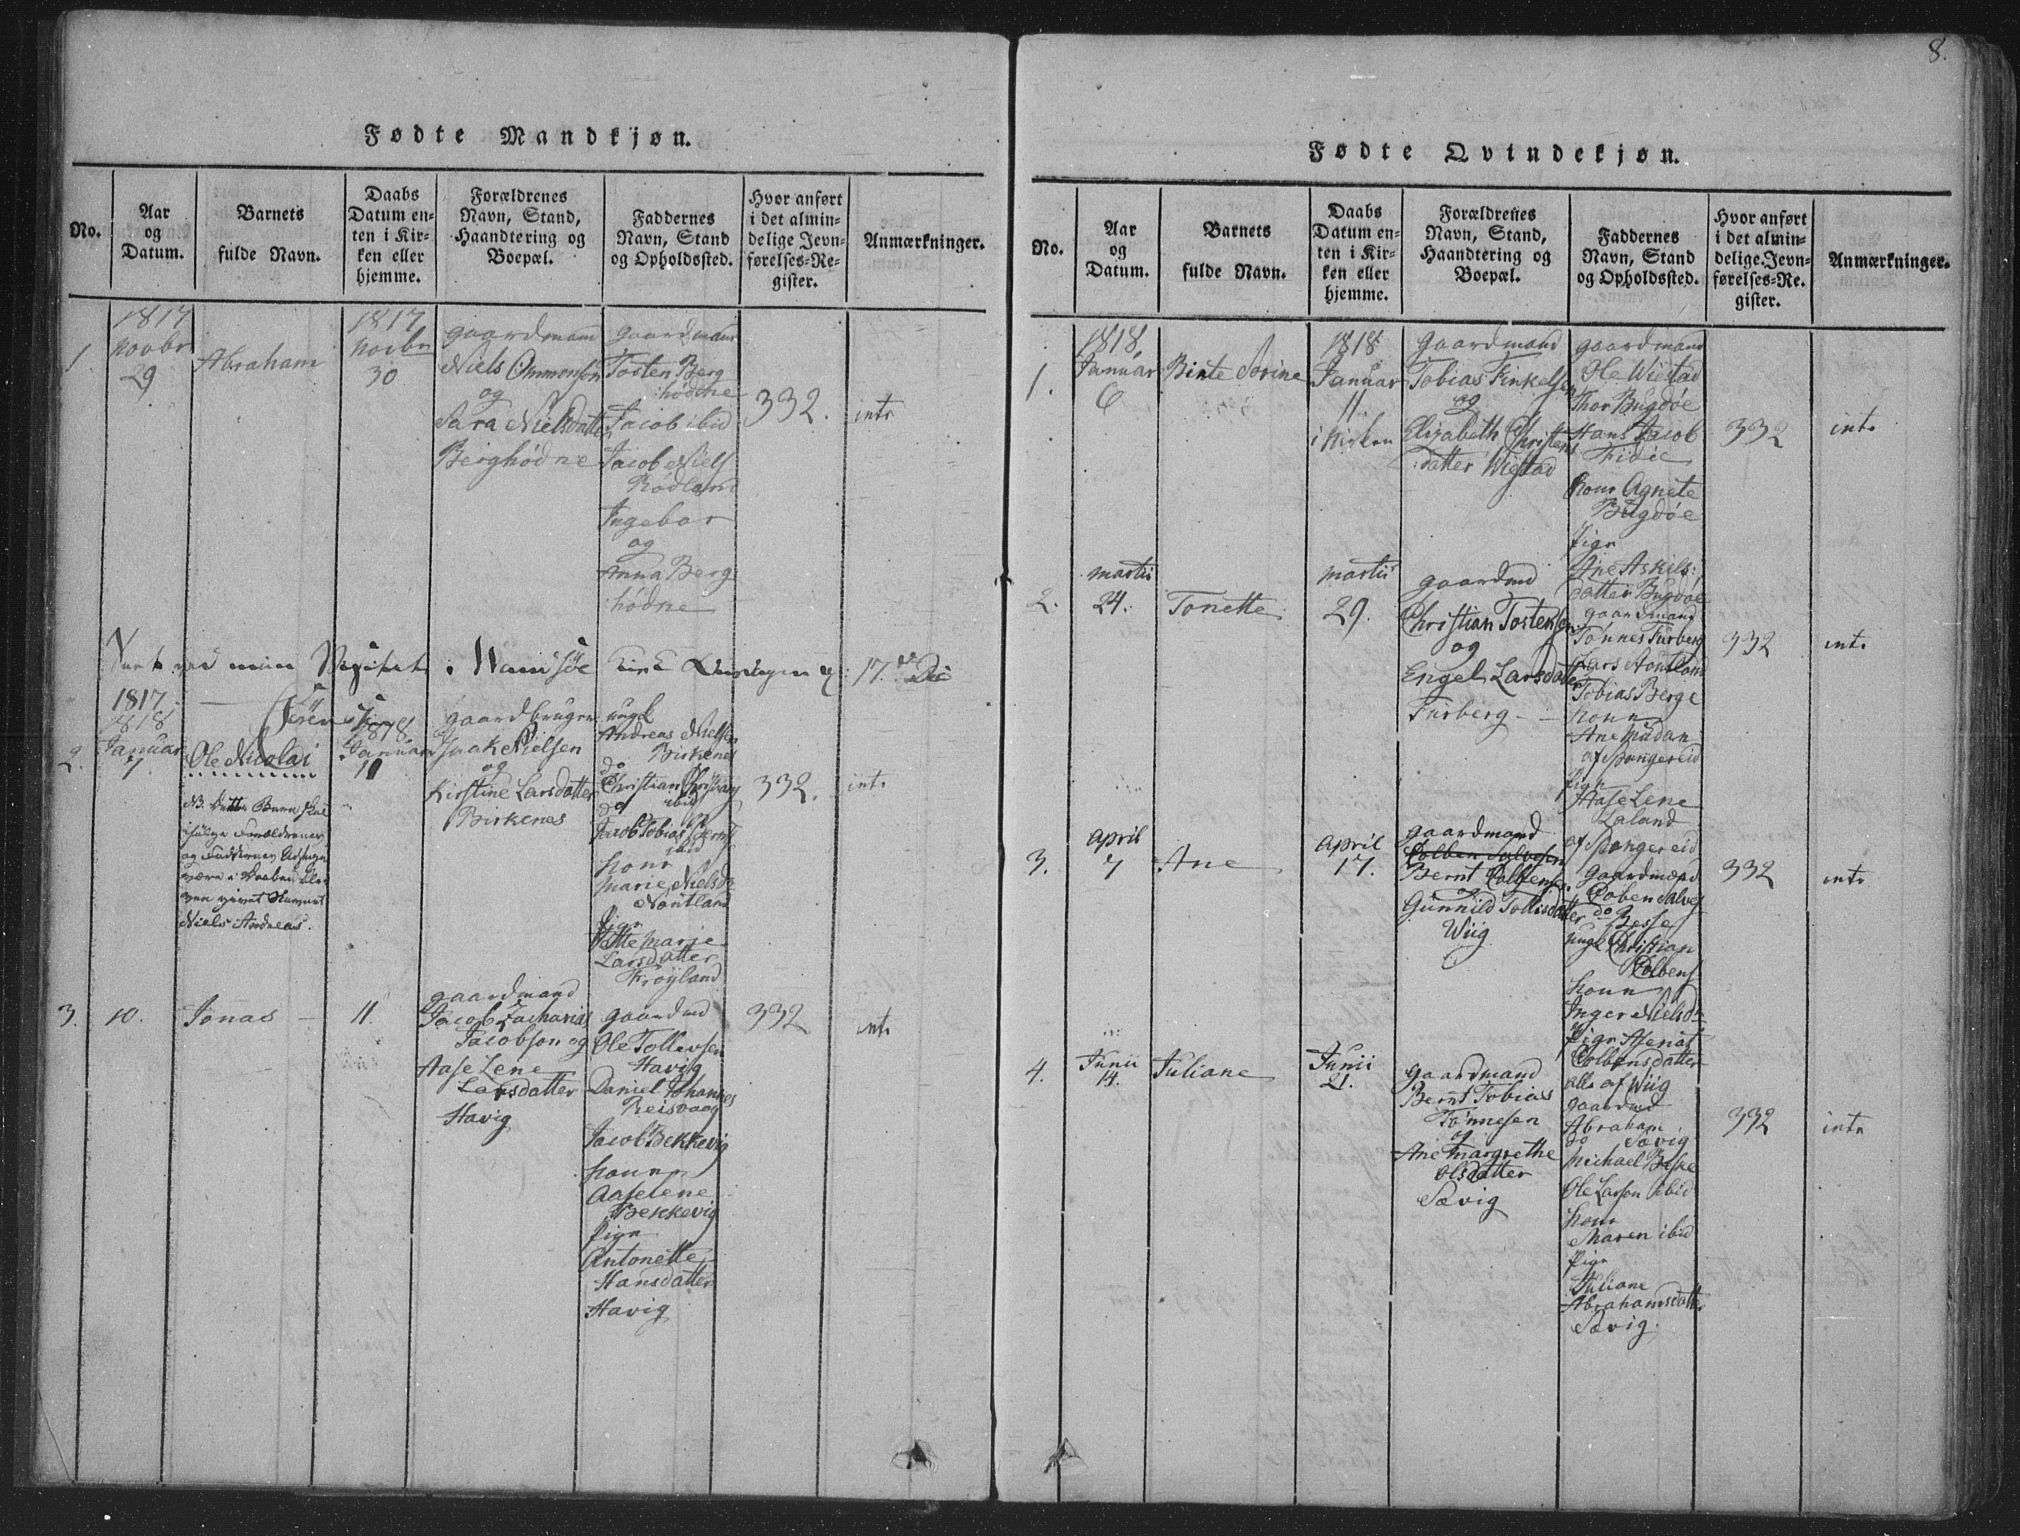 8.
Fødte Mandkjøn.
No.
Aar
og
Datum.
Barnets
fulde Navn.
Daabs
Datum en-
ten i Kir-
ken eller
hjemme.
Forældrenes
Navn, Stand,
Haandtering og
Boepæl.
Faddernes
Navn, Stand
og Opholdssted.
Hvor anført
i det almin-
delige Jevn-
førelses-Re-
gister.
Anmærkninger.
1.
1817
Novbr
29
Abraham
1817
Novbr
30
gaardmand
Niels Ommonsøn
og
Sara Nielsdatter
Berghödne
gaardmand
Tosten Berg
hödne
Jacob ibid
Jacob Niels
Rödland
Ingebor
og
Anna Berg
hödne
332.
intr
17. Dec
1817.
2.
1818
Januar
7
Ole Nicolai
Niels Andreas.
1818
Januar
11
gaardbruger
Isaak Nielsen
og
Kirstine Larsdatter
Birkenes
ungk
Andreas Nielsen
Birkenes
do
Christian
ibid
do
Jacob Tobias Bernt
ibid
Marie Nielsd
Nöutland
Pigr
Marie
Larsdatter
Fröyland
332.
intr
3.
10.
Jonas
11.
gaardmand
Jacob Zacharias
Jacobson og
Aase Lene
Larsdatter
Havig
gaardmd
Ole Tollevsen
Havig
Daniel Johannes
Reisvaag
Jacob Bekkevig
Aaselene
Bekkevig
Pigr
Antonette
Hansdatter
Havig
332
intr
Fødte Qvindekjøn.
No.
Aar
og
Datum.
Barnets
fulde Navn.
Daabs
Datum en-
ten i Kir-
ken eller
hjemme.
Forældrenes
Navn, Stand,
Haandtering og
Boepæl.
Faddernes
Navn, Stand
og Opholdssted.
Hvor anført
i det almin-
delige Jevn-
førelses-Re-
gister.
Anmærkninger.
1.
1818
Januar
6
Birte Sorine
1818
Januar
11
i Kirken
gaardmand
Tobias Finkelsen
og
Elizabeth Christens
datter Wigstad
gaardmand
Ole Wigstad
Thor Bugdøe
Hans Jacob
Fidie
Kone Agnete
Bugdøe
Pigr
Ane Askels
datter Bugdøe
332
intr
2.
Martii
24.
Tonette
Martii
29.
gaardmd
Christian Tostensen
og
Engel Larsdatter
Furberg
gaardmand
Tönnes Furberg
Lars Aoutland
Tobias Berge
Kone
Ane
af Spangereid
Pigr
Aase Lene
Laland
af Spangereid
332
intr
3.
April
7
Ane
April
17.
gaardmand
Colben Salvesen
Bernt Colbense.
og
Gunnild Tollisdatter
Wiig
gaardmand
Coben Salves
do Besse
ungk Christian
Colbens
Kone
Inger Nielsd
Pigr Asenat
Colbensdatter
alle af Wiig
332
intr
4.
Junii
14.
Juliane
Junii
21.
gaardmand
Bernt Tobias
Tönnesen
og
Ane Margrethe
Olsdatter
Sævig
gaardmd
Abraham
do Sævig
Michael Beske
Ole Larson ibid
Kone
Maren ibid
Pigr
Juliane
Abrahamsdatter
Sævig.
332
intr